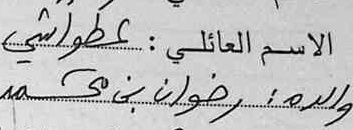 الاسم العائلي : عطواشي
والده : رضوان بن محمد